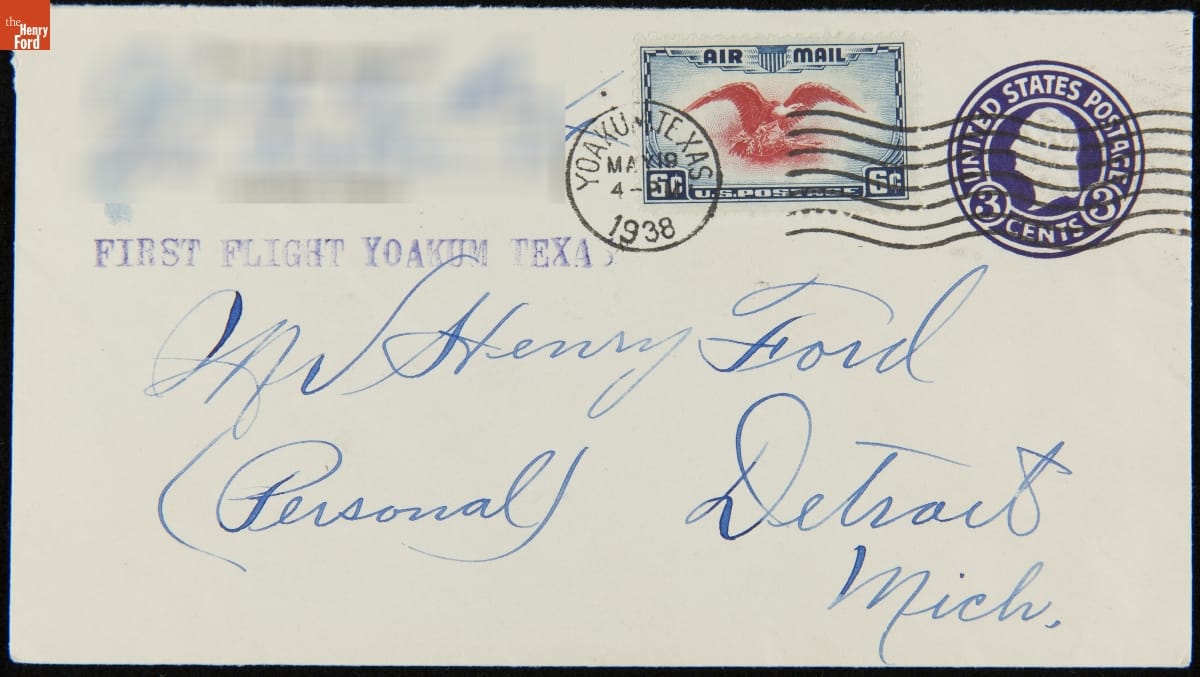 the
Henry
Ford
AIR MAIL
YOAKUM TEXAS
MAY 19
1938
6¢ U.S. POSTAGE 6¢
UNITED STATES POSTAGE
3 CENTS 3
FIRST FLIGHT YOAKUM TEXAS
Mr Henry Ford
(Personal) Detroit
Mich.